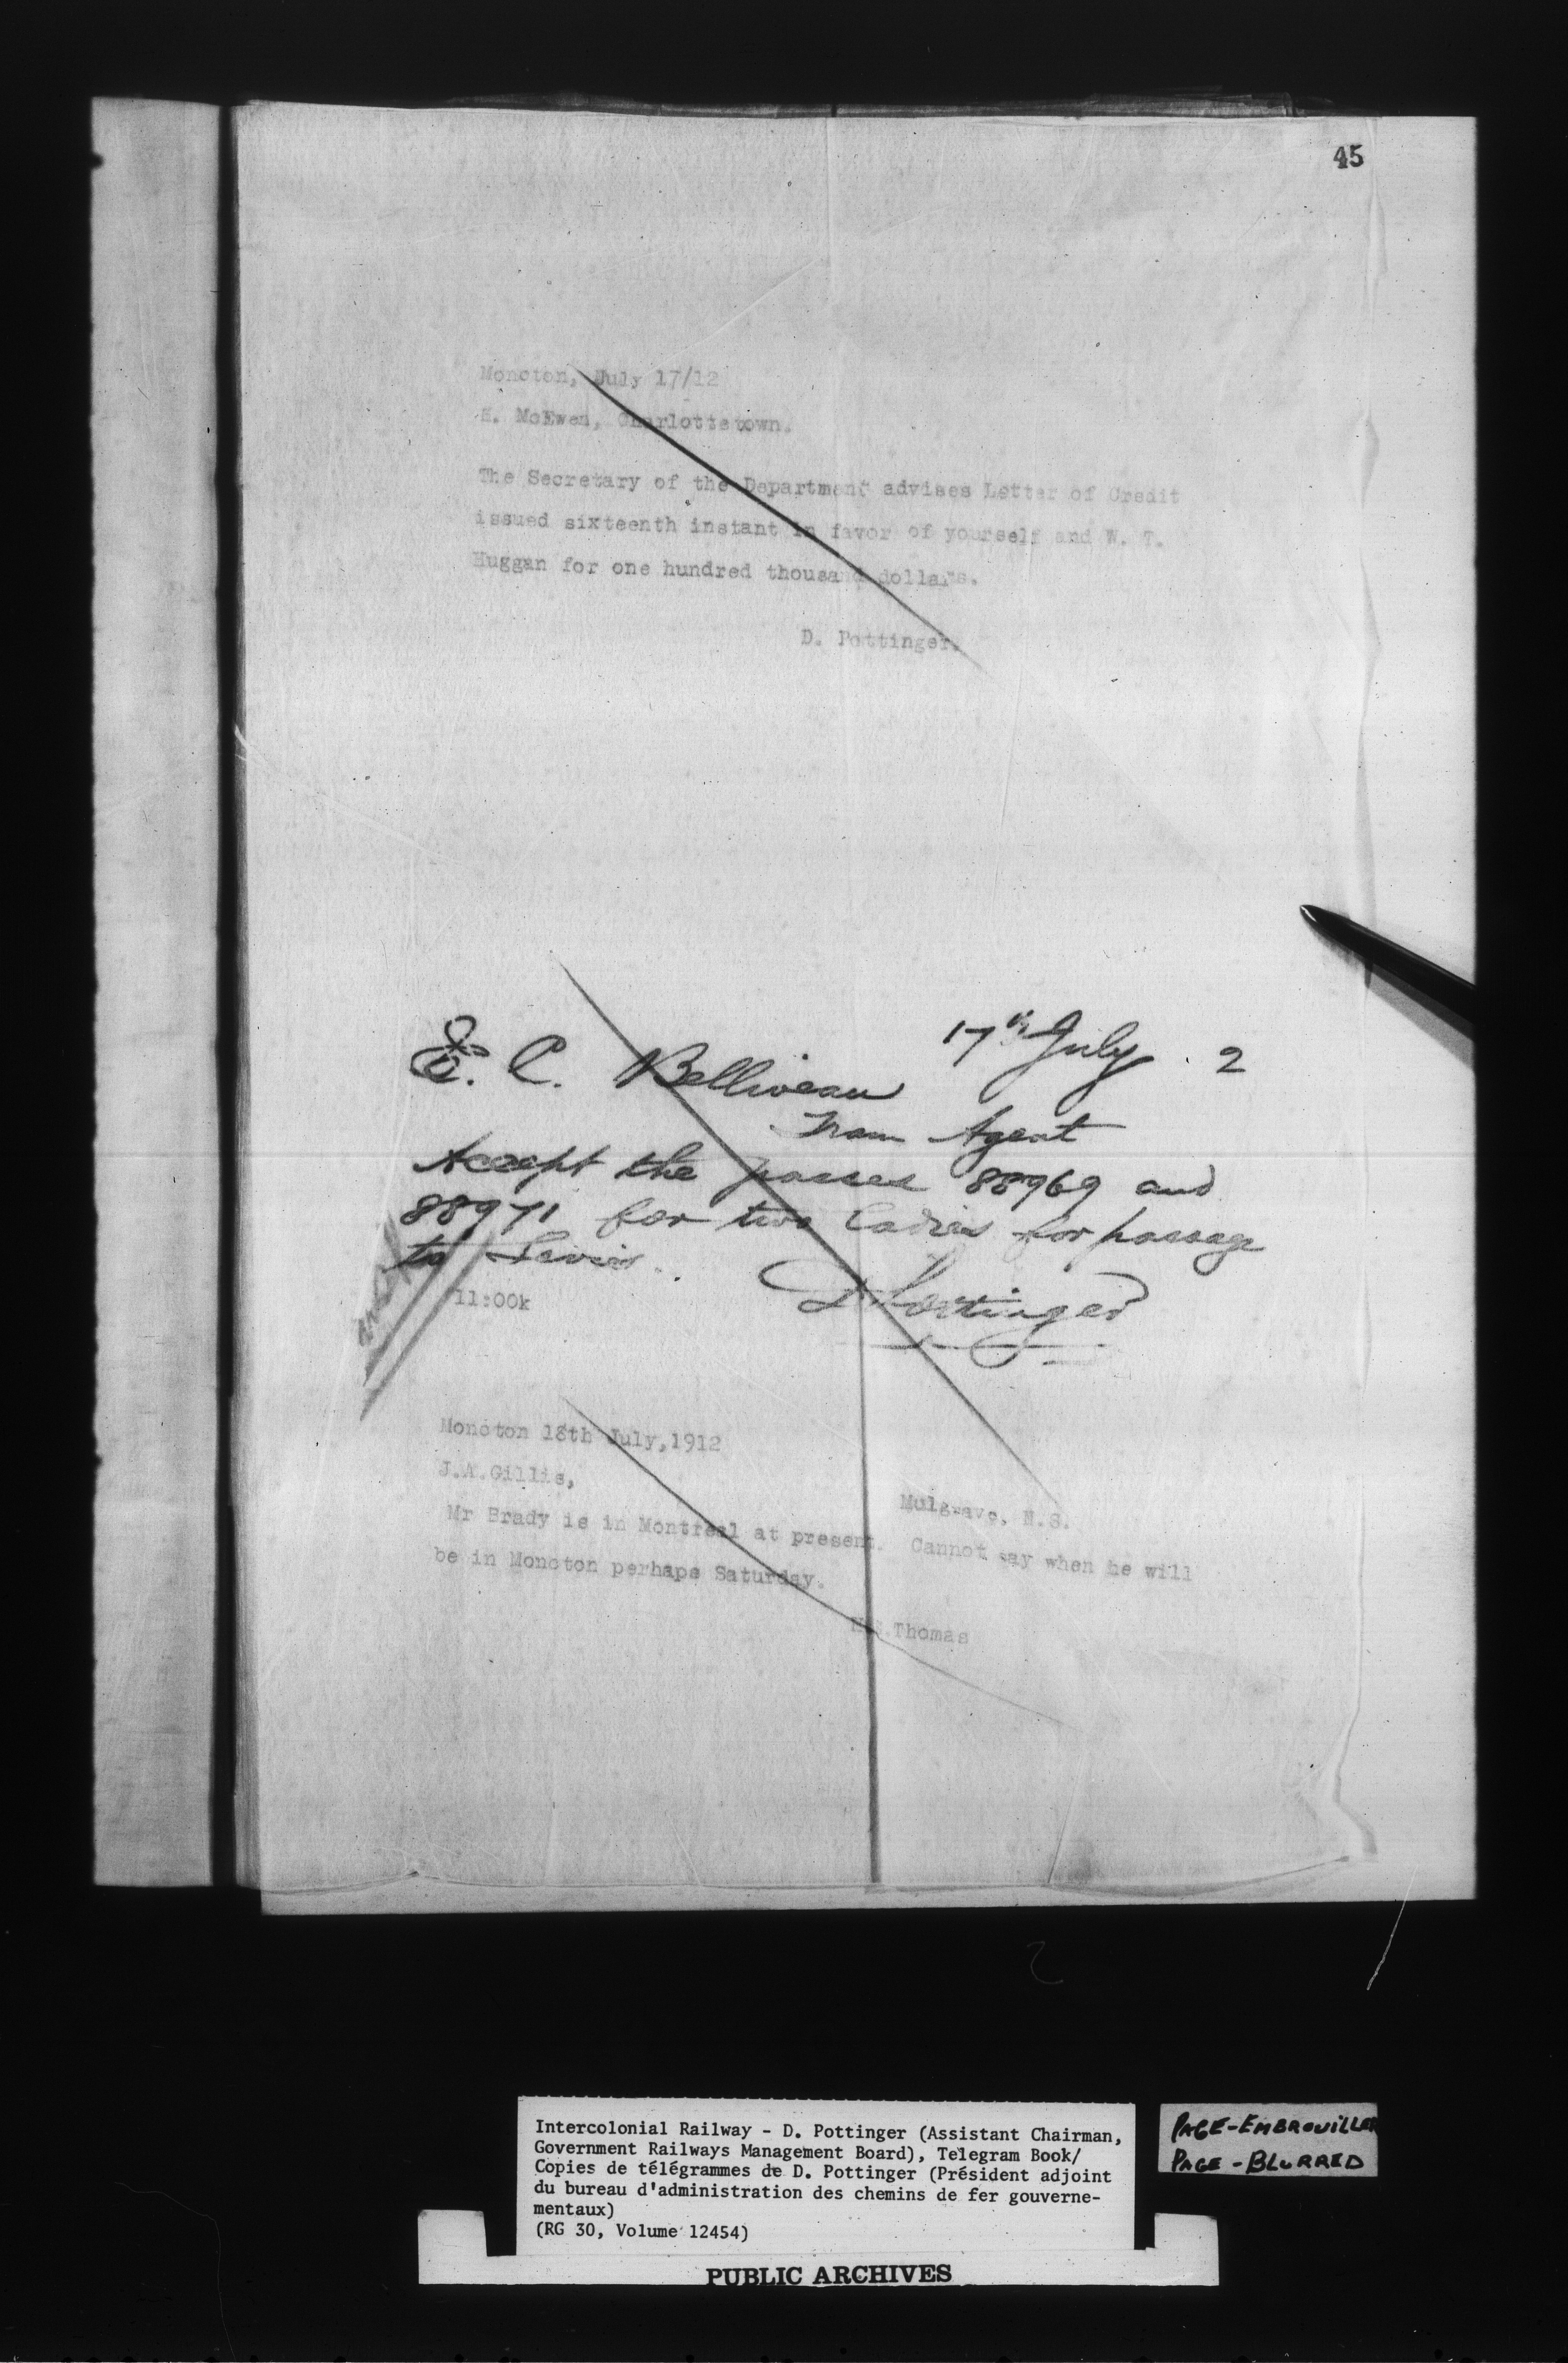 45
Moncton, July 17/12
H. McEwen, Charlottetown.
The Secretary of the Department advises Letter of Credit
issued sixteenth instant in favor of yourself and W. T.
Huggan for one hundred thousand dollars.
D. Pottinger.
17th July 2
E. C. Belliveau
Train Agent
Accept the passes 88969 and
88971 for two ladies for passage
to Levis.
D Pottinger
11:00k
Moncton 18th July, 1912
J.A.Gillis,
Mulgrave, N.S.
Mr Brady is in Montreal at present. Cannot say when he will
be in Moncton perhaps Saturday.
Thomas
Intercolonial Railway - D. Pottinger (Assistant Chairman,
Government Railways Management Board), Telegram Book/
Copies de télégrammes de D. Pottinger (Président adjoint
du bureau d'administration des chemins de fer gouverne-
mentaux)
(RG 30, Volume 12454)
PAGE-EMBROUILLER
PAGE-BLURRED
PUBLIC ARCHIVES